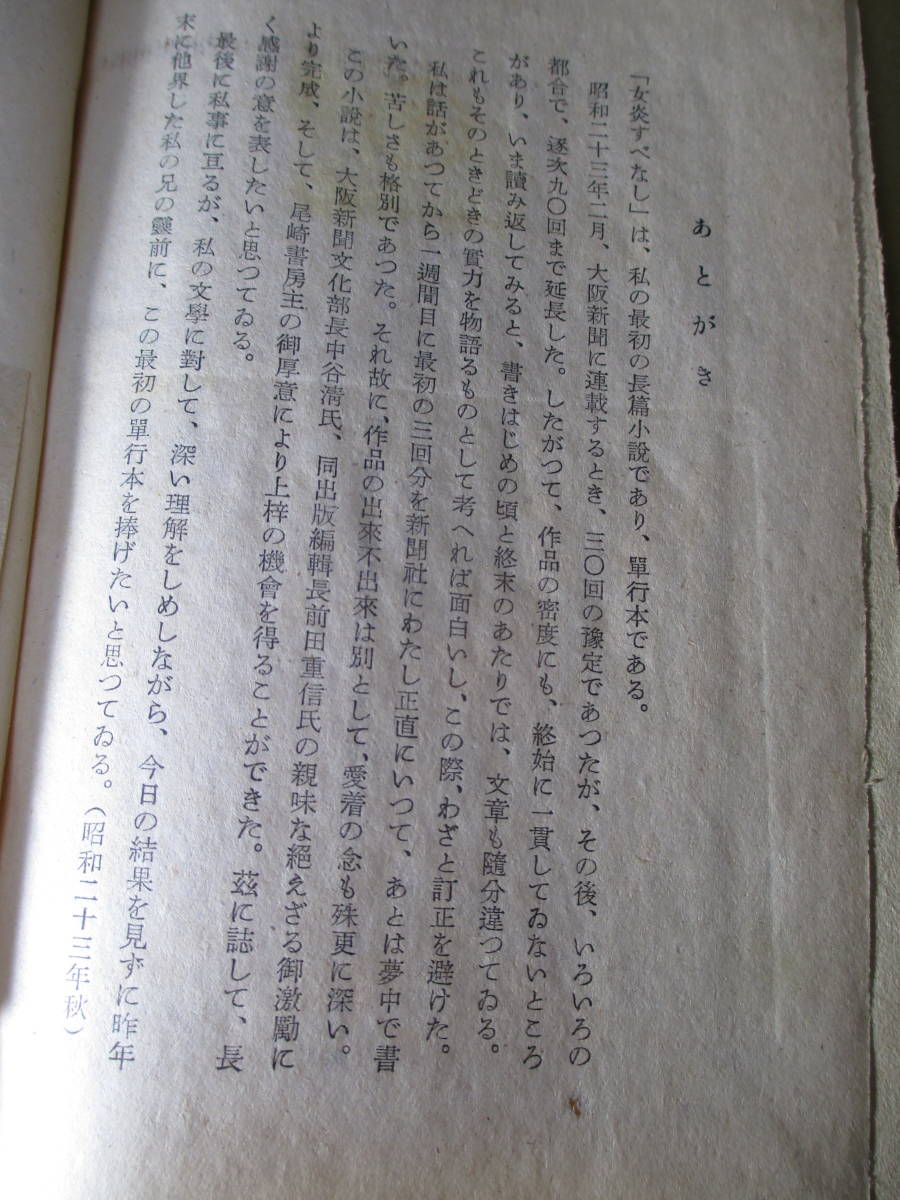 あとがき
「女炎すべなし」は、私の最初の長篇小說であり、單行本である。
昭和二十三年二月、大阪新聞に連載するとき、三〇回の豫定であつたが、その後、いろいろの
都合で、逐次九〇回まで延長した。したがつて、作品の密度にも、終始に一貫してゐないところ
があり、いま讀み返してみると、書きはじめの頃と終末のあたりでは、文章も隨分違つてゐる。
これもそのときどきの實力を物語るものとして考へれば面白いし、この際、わざと訂正を避けた。
私は話があつてから一週間目に最初の三回分を新聞社にわたし正直にいつて、あとは夢中で書
いた。苦しさも格別であつた。それ故に、作品の出來不出來は別として、愛着の念も殊更に深い。
この小說は、大阪新聞文化部長中谷淸氏、同出版編輯長前田重信氏の親味な絕えざる御激勵に
より完成、そして、尾崎書房主の御厚意により上梓の機會を得ることができた。茲に誌して、長
く感謝の意を表したいと思つてゐる。
最後に私事に亙るが、私の文學に對して、深い理解をしめしながら、今日の結果を見ずに昨年
末に他界した私の兄の靈前に、この最初の單行本を捧げたいと思つてゐる。（昭和二十三年秋）